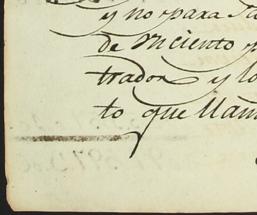 y no para
de Inciento
trador y lo
to que llam